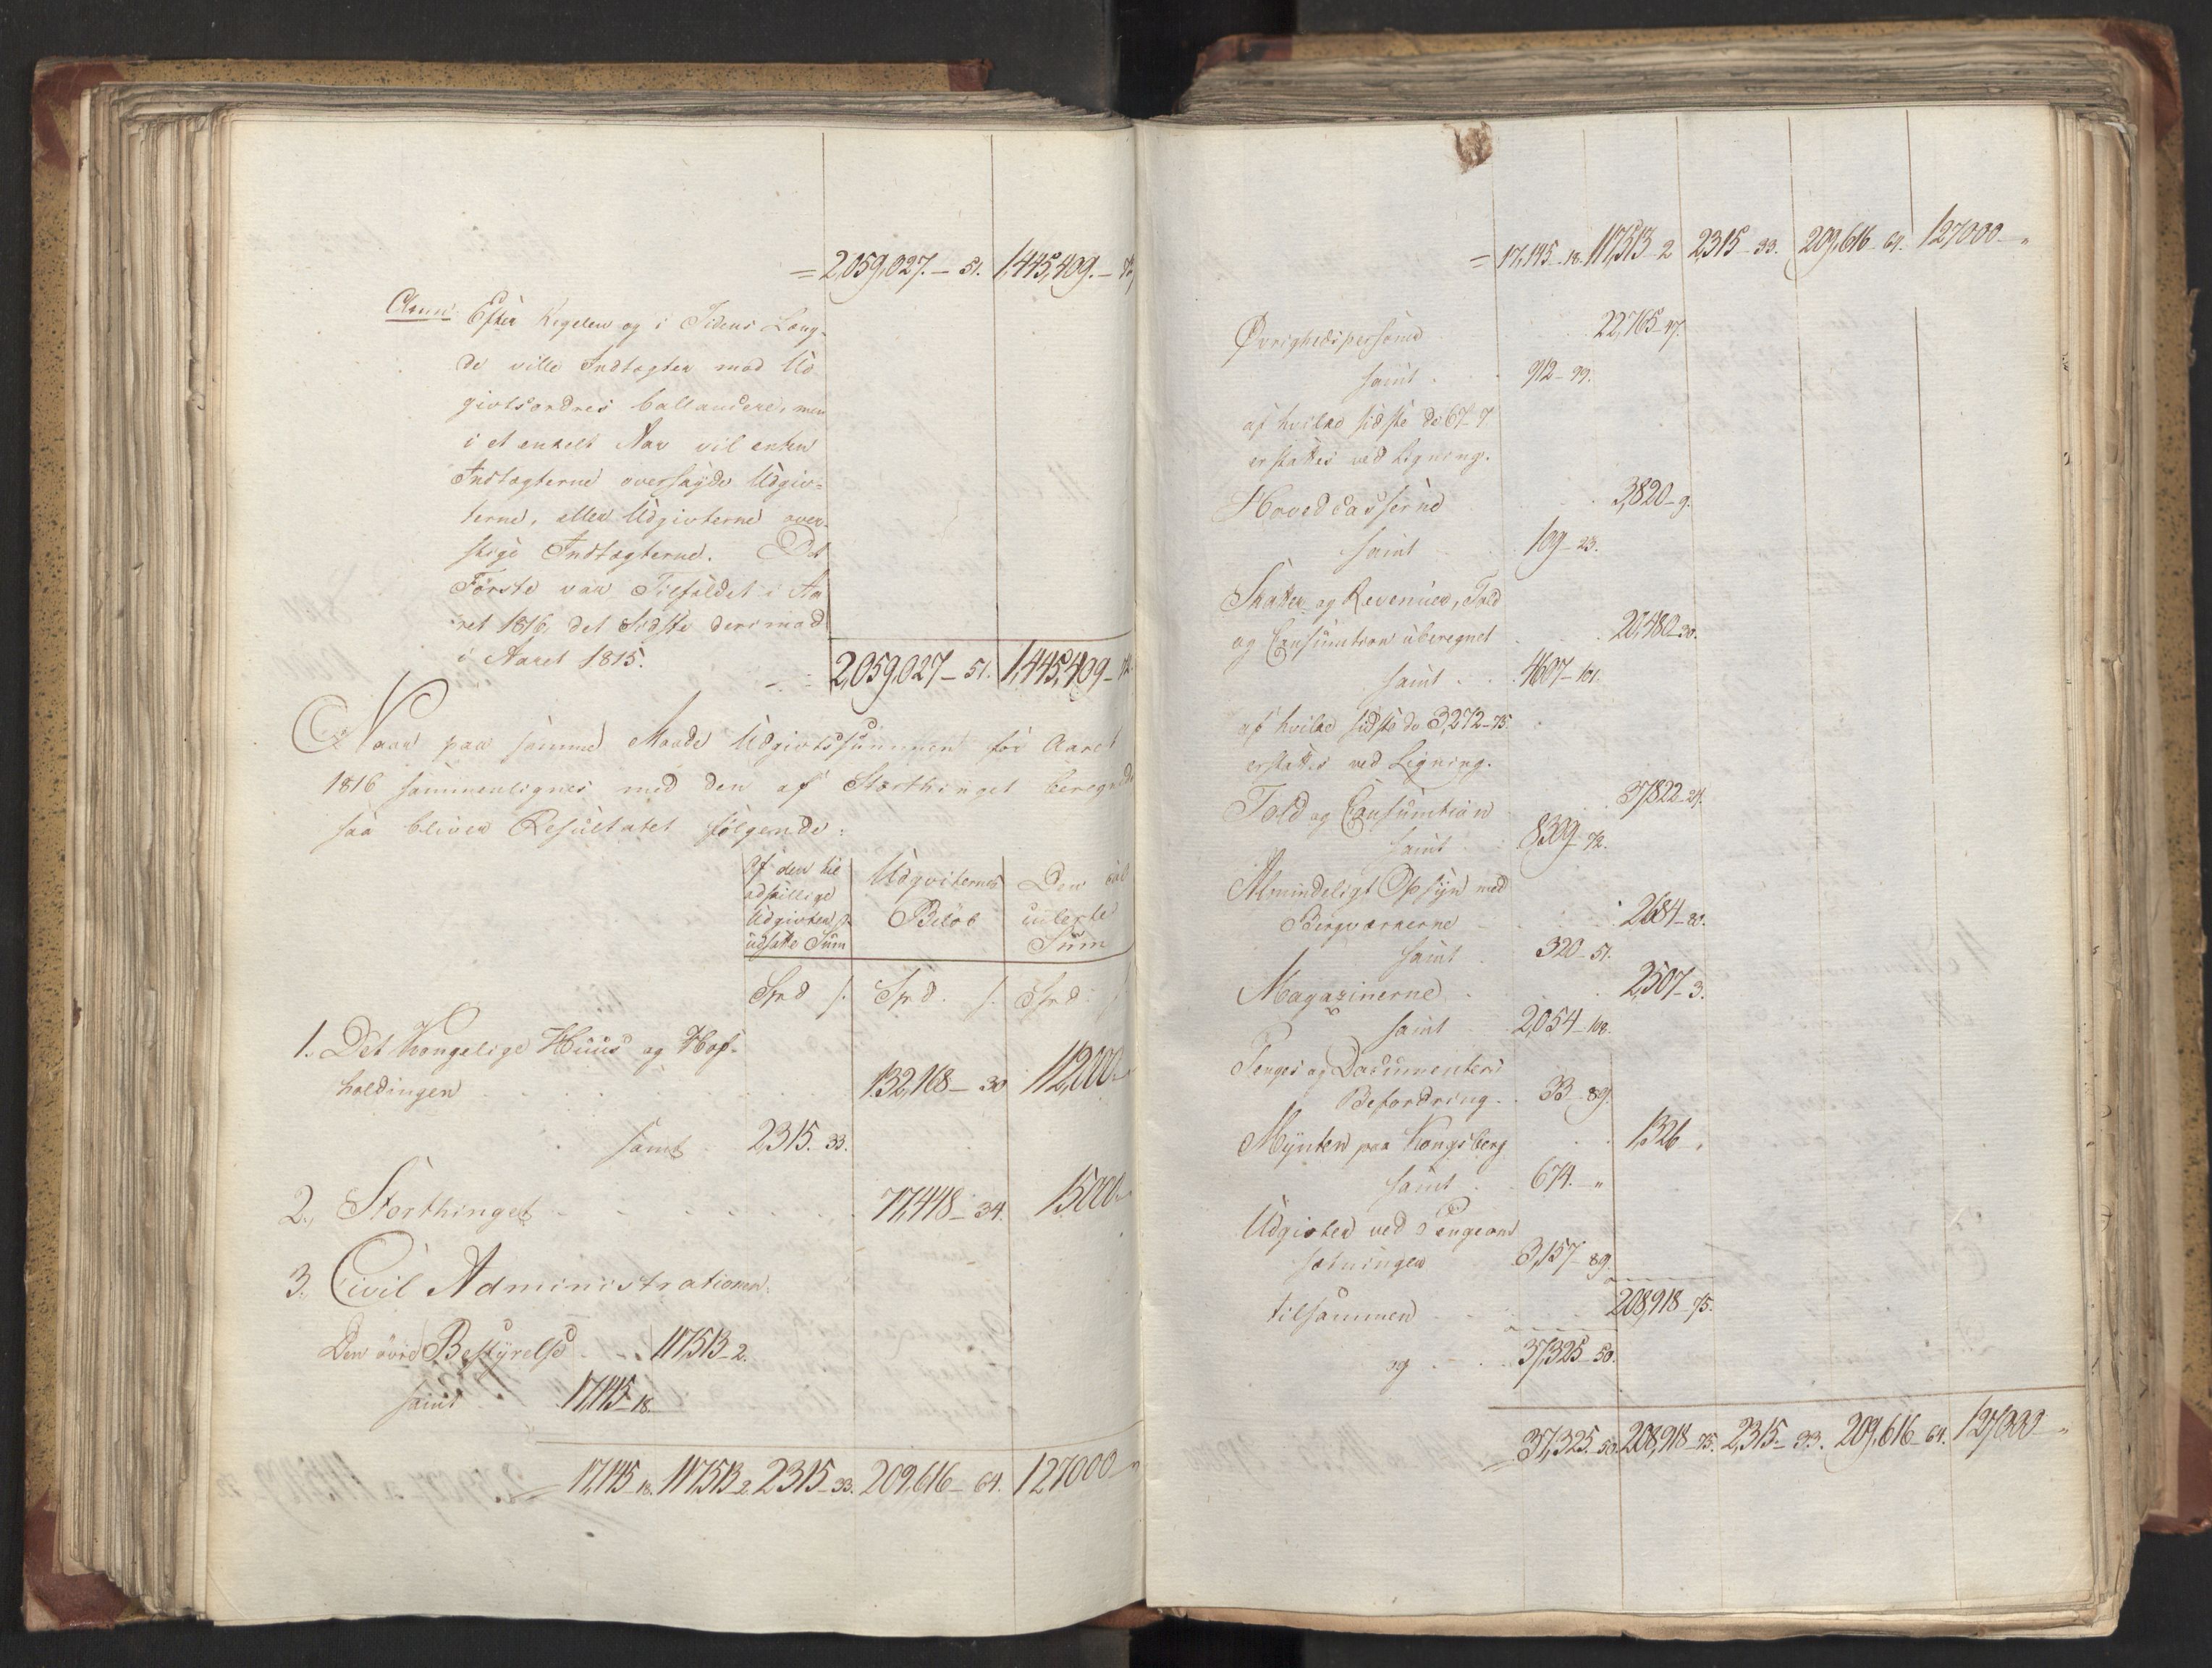 = 2,059,027. – 51. 1,445,409. –
Anm: Efter Regelen og i Tidens Læng-
de ville Indtægter med Ud
givtsordres ballancere, men
i et enkelt Aar vil enten
Indtægterne overstige Udgiv=
terne, eller Udgivterne over-
stige Indtægterne. Det
Første var Tilfældet i Aa
ret 1816, det Sidste derimod
i Aaret 1815.
2,059,027 – 51. 1,445,409 –
Naar paa samme Maade Udgivtssummen for Aaret
1816 sammenlignes med den af Storthinget beregnede
saa bliver Resultatet følgende:
Af den til
adskillige
Udgivter
udsatte Sum
Udgivternes
Beløb
Den cal
culerte
Sum
Spd ſ. Spd. ſ. Spd. ſ
1. Det Kongelige Huus og Hof-
holdingen 132,168 – 30 112,000 –
samt 2315. 33.
2., Storthinget 77,448 – 34. 15000 –
3., Civil Administrationen.
Den øvre Bestyrelse 117,513 – 2.
samt 17,145 – 18.
= 17,145 – 18. 117,513 – 2. 2315 – 33. 209,616 – 64. 127000 – "
= 17,145 – 18. 117,513 – 2 2,315 – 33. 209,616 – 64. 127000 – "
Øvrighedspersoner 22,765 – 47.
samt 912 – 99.
af hvilke sidste do 67 – 7
erstattes ved Ligning.
Hovedcasserne 3,820 – 9.
samt 109 – 23.
Skatter og Revenuer, Told
og Consumtion uberegnet 20,480 – 30.
samt 4607 – 101.
af hvilke sidste do 3,272 – 75
erstattes ved Ligning.
Told og Consumtion 37,822 – 24.
samt 8309 – 72.
Almindeligt Opsyn med
Bergværkerne 2684 – 80.
samt 320 – 51.
Magazinerne 2,507 – 3.
samt 2,054 – 108.
Penges og Documenters
Befordring 33 – 89.
Mynten paa Kongsberg 1,326 "
samt 674. – "
Udgivter ved Pengeom
sætningen 3,157 – 89.
tilsammen 208,918 – 75.
og 37,325 – 50.
= 37,325 – 50. 208,918 – 75. 2,315 – 33. 209,616 – 64. 127,000 – "